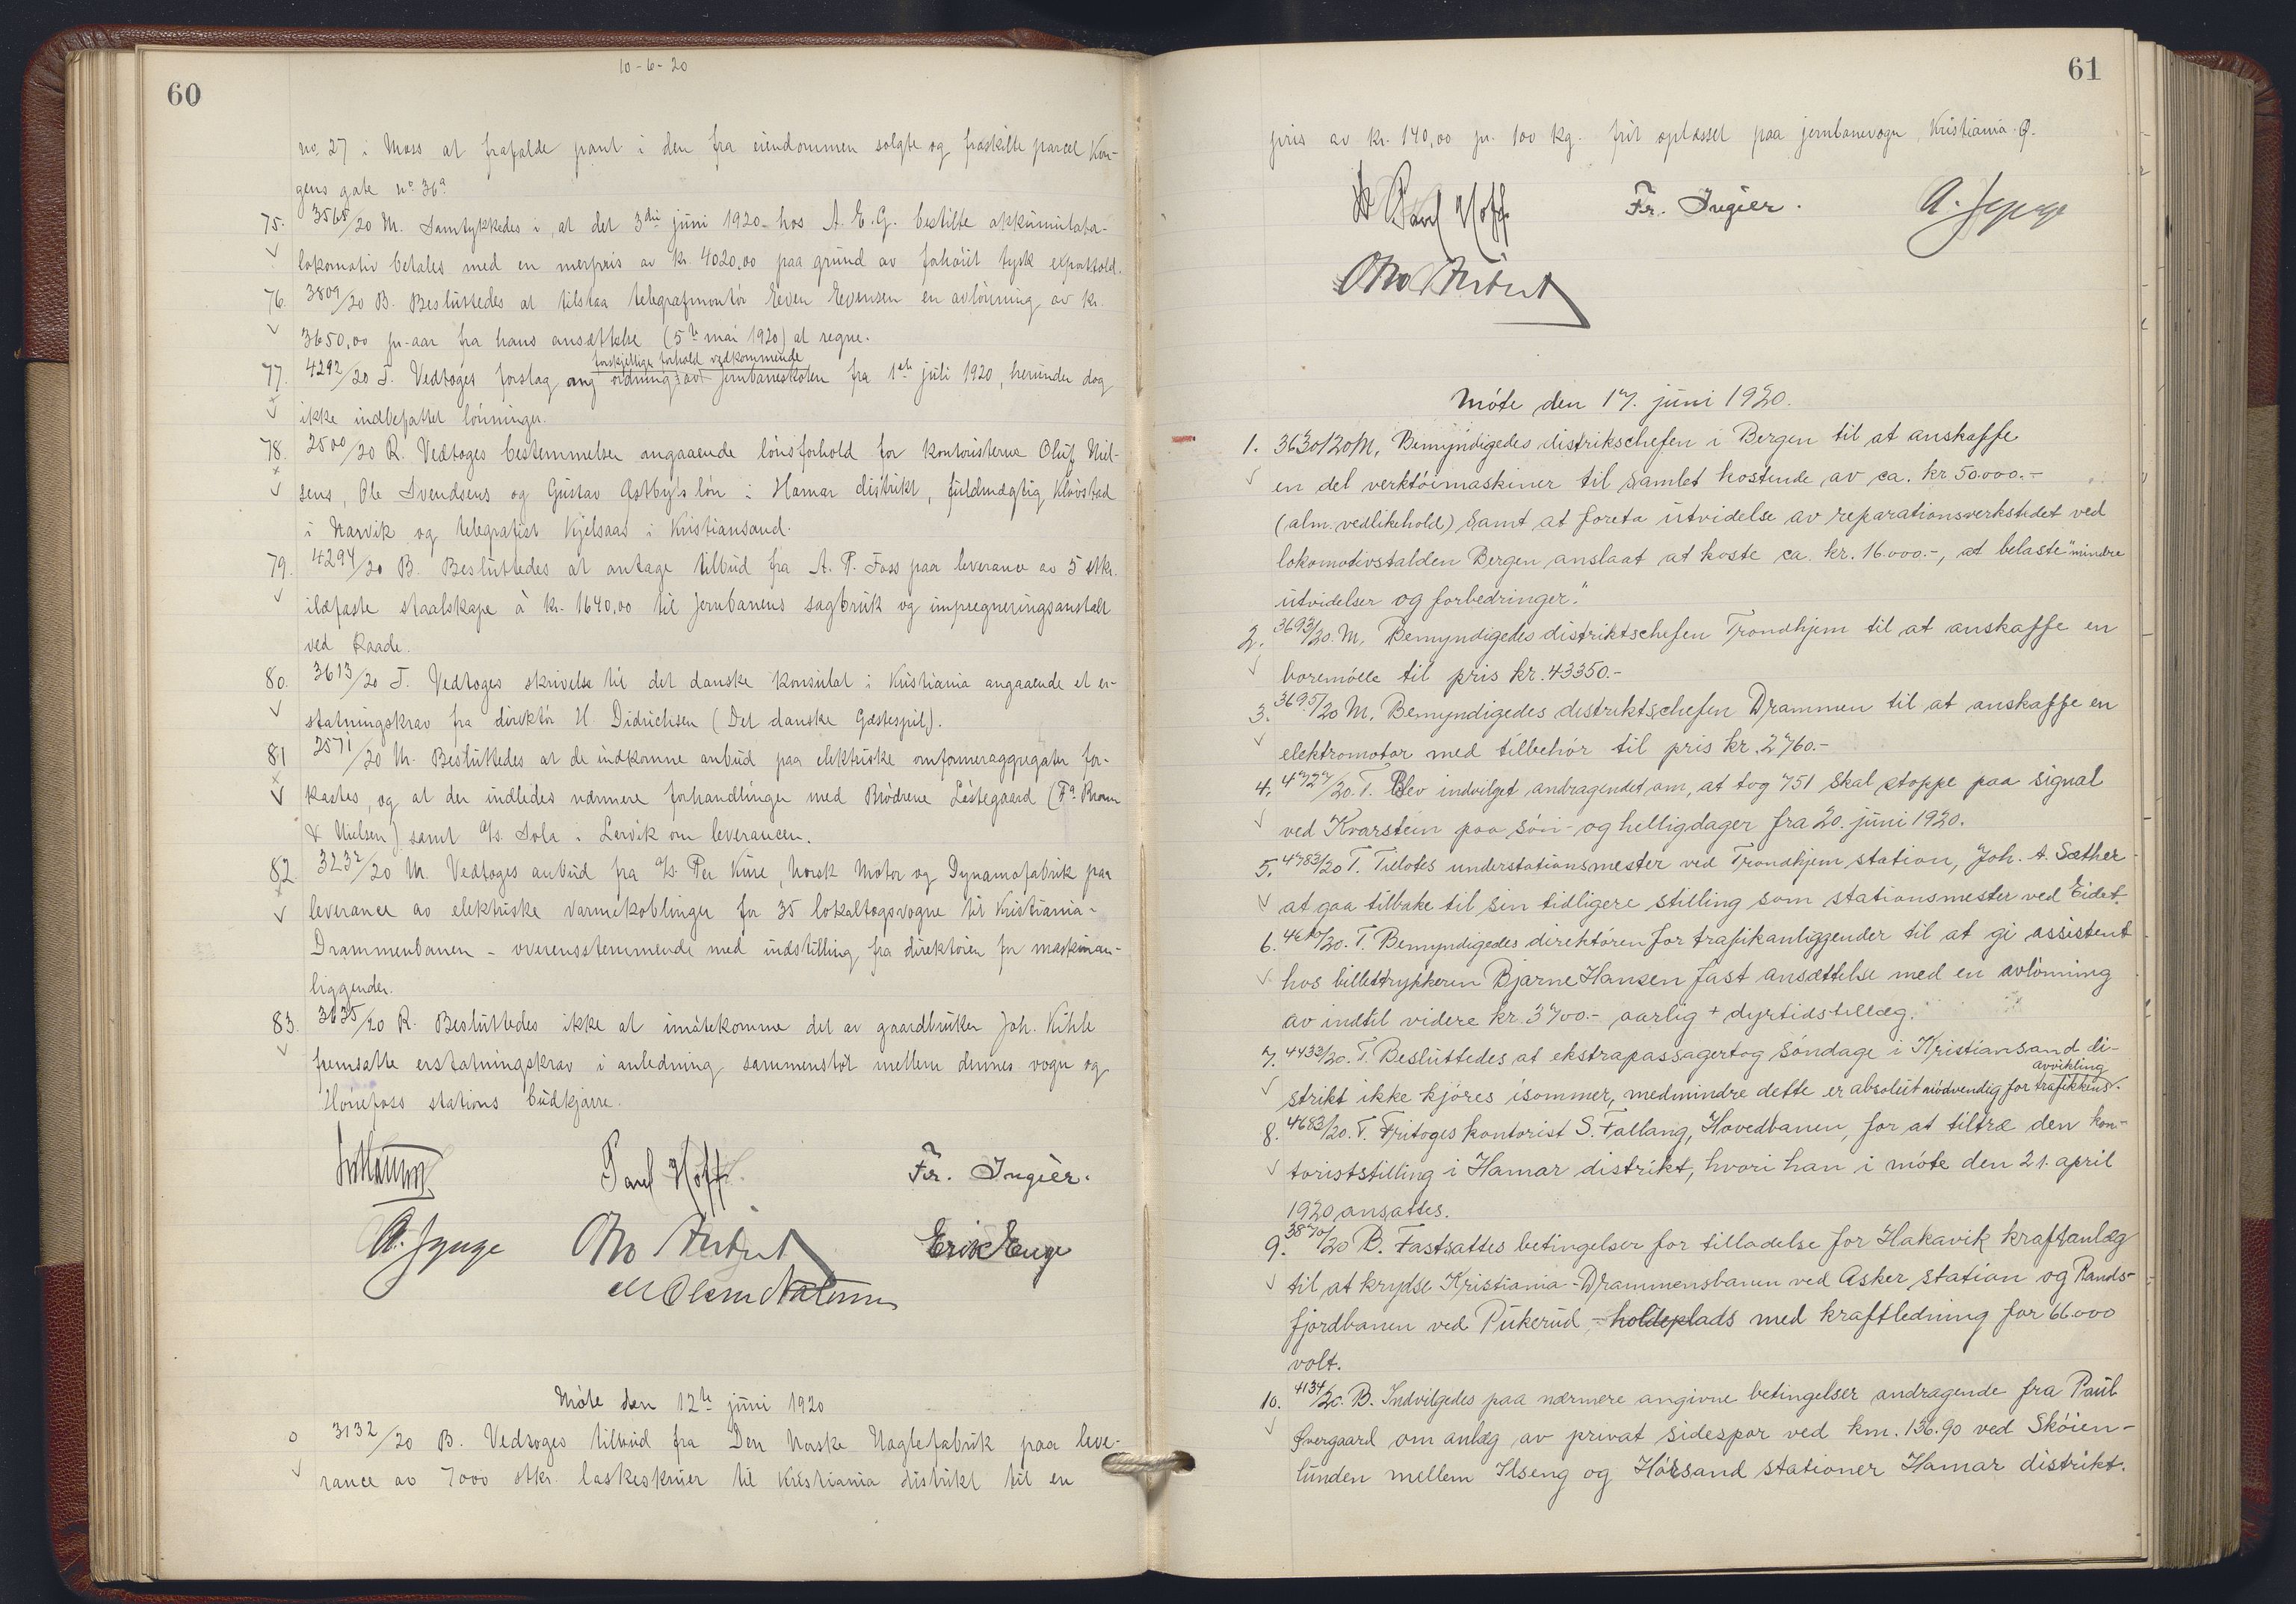 60
10-6-20
no. 27 i Moss at frafalde pant i den fra eiendommen solgte og fraskilte parcel Kon-
gens gate nº 36ª.
75. 3565/20 M. Samtykkedes i, at det 3die juni 1920 hos A. E. G. bestilte akkumulator-
lokomotiv betales med en merpris av kr. 4020,00 paa grund av forhöiet tysk exporttold.
76. 3809/20 B. Besluttedes at tilstaa telegrafmontör Even Evensen en avlönning av kr.
3650,00 pr. aar fra hans ansættelse (5te mai 1920) at regne.
forskjellige forhold vedkommende
77. 4292/20 T. Vedtoges forslag ang ordning av jernbaneskolen fra 1ste juli 1920, herunder dog
ikke indbefattet lönninger.
78. 2500/20 R. Vedtoges bestemmelser angaaende lönsforhold for kontoristerne Oluf Niel-
sens, Ole Svendsens og Gustav Astby's lön i Hamar distrikt, fuldmægtig Klövstad
i Narvik og telegrafist Kjelsaas i Kristiansand.
79. 4294/20 B. Besluttedes at antage tilbud fra A. P. Foss paa leverance av 5 stkr.
ildfaste staalskape à kr. 1640,00 til Jernbanens sagbruk og impregneringsanstalt
ved Raade.
80. 3613/20 T. Vedtoges skrivelse til det danske konsulat i Kristiania angaaende et er-
statningskrav fra direktör H. Didrichsen (Det danske Gæstespil).
81 2571/20 M. Besluttedes at de indkomne anbud paa elektriske omformeraggregater for-
kastes, og at der indledes nærmere forhandlinger med Brödrene Lestegaard (Fª.
& Nielsen) samt A/s. Sola i Lervik om leverancen.
82. 3232/20 M. Vedtoges anbud fra A/s. Per Kure, Norsk Motor og Dynamofabrik paa
leverance av elektriske varmekoblinger for 35 lokaltogsvogne til Kristiania-
Drammenbanen - overensstemmende med indstilling fra direktören for maskinan-
liggender.
83. 3635/20 R. Besluttedes ikke at imötekomme det av gaardbruker Joh. Kihle
fremsatte erstatningskrav i anledning sammenstöt mellem dennes vogn og
Hönefoss stations budkjærre.
Paul Hoff. Fr. Ingier.
Erik Enge
Möte den 12te juni 1920
3132/20 B. Vedtoges tilbud fra Den Norske Naglefabrik paa leve-
rance av 7000 stkr. laskeskruer til Kristiania distrikt til en
61
pris av kr. 140,00 pr. 100 kg. frit oplæsset paa jernbanevogn, Kristiania Ø.
Paul Hoff Fr. Ingier.
Möte den 17. juni 1920.
1. 3630/20 M. Bemyndigedes distrikschefen i Bergen til at anskaffe
en del verktöimaskiner til samlet kostende av ca. kr 50.000.-
(alm. vedlikehold) samt at foreta utvidelse av reparationsverkstedet ved
lokomotivstalden Bergen anslaat at koste ca. kr. 16.000.-, at belaste "mindre
utvidelser og forbedringer."
2. 3693/20. M. Bemyndigedes distriktschefen Trondhjem til at anskaffe en
boremölle til pris kr. 43350.-
3. 3695/20 M. Bemyndigedes distriktschefen Drammen til at anskaffe en
elektromotor med tilbehör til pris kr. 2760.-
4. 4727/20. T. Blev indvilget andragendet om, at tog 751 skal stoppe paa signal
ved Kvarstein paa sön- og helligdager fra 20. juni 1920.
5. 4783/20 T. Tillotes understationsmester ved Trondhjem station, Joh. A. Sæther
at gaa tilbake til sin tidligere stilling som stationsmester ved Eidet.
6. /20. T. Bemyndigedes direktören for trafikanliggender til at gi assistent
hos billettrykkeren Bjarne Hansen fast ansættelse med en avlönning
av indtil videre kr. 3700.- aarlig + dyrtidstillæg.
7. 4433/20. T. Besluttedes at ekstrapassagertog söndage i Kristiansand di-
strikt ikke kjöres isommer, medmindre dette er absolut nödvendig for trafikkens avvikling.
8. 4683/20. T. Fritoges kontorist S. Fallang, Hovedbanen, for at tiltræ den kon-
toriststilling i Hamar distrikt, hvori han i möte den 21. april
1920 ansattes.
9. 3870/20 B. Fastsattes betingelser for tilladelse for Hakavik kraftanlæg
til at krydse Kristiania-Drammensbanen ved Asker station og Rands-
fjordbanen ved Pukerud - holdeplads med kraftledning for 66.000
volt.
10. 4134/20. B. Indvilgedes paa nærmere angivne betingelser andragende fra Paul
Övergaard om anlæg av privat sidespor ved km. 136.90 ved Sköien-
lunden mellem Ilseng og Hörsand stationer Hamar distrikt.